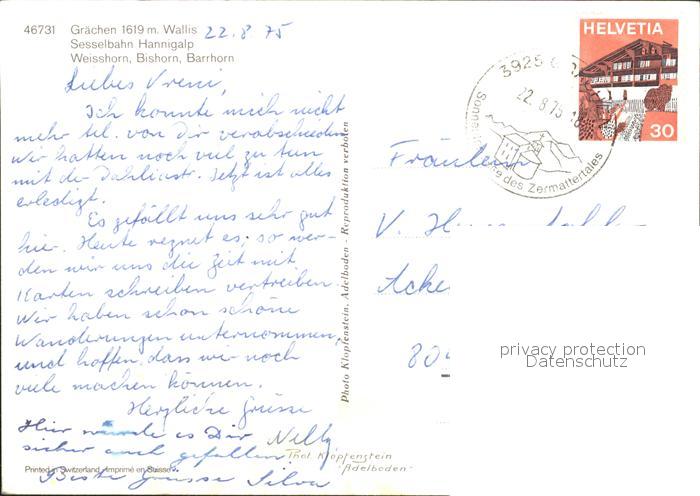 46731 Grächen 1619 m. Wallis
Sesselbahn Hannigalp
Weisshorn, Bishorn, Barrhorn
22.8.75
Liebes Vreni,
Ich konnte mich nicht
mehr tel. von Dir verabschieden
wir hatten noch viel zu tun
mit der Dahliastr. Jetzt ist alles
erledigt.
Es gefällt uns sehr gut
hier. Heute regnet es, so wer-
den wir uns die Zeit mit
Karten schreiben vertreiben.
Wir haben schon schöne
Wanderungen unternommen,
und hoffen, dass wir noch
viele machen können.
Herzliche Grüsse
Nelly
Hier würde es Dir
sicher auch gefallen.
Beste Grüsse Silva
Printed in Switzerland - Imprimé en Suisse
Phot. Klopfenstein
"Adelboden"
Photo Klopfenstein, Adelboden - Reproduktion verboten
HELVETIA
30
3925
22.8.75
des Zermattertales
Fräulein
V.
Acke
80
privacy protection
Datenschutz